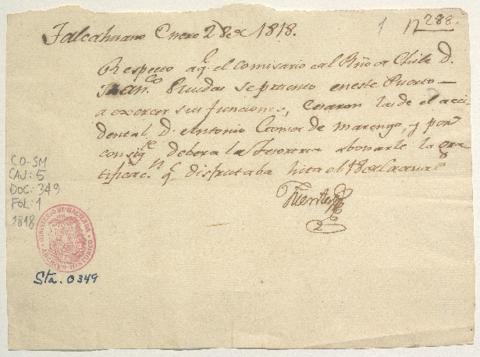 Talcahuano Enero 28 de 1818.
1 N 288.
Respecto a q.e el Comisario del Rño de Chile D.
Juan Fran.co se presentó en este Puerto
a exercer sus funciones, cesaron las de el acci
dental D. Antonio de Marengo, y por
consig.te deberá la Tesoreria abonarle la gra
tificac.n q.e disfrutaba hasta el
Fuentes
CO-SM
CAJ: 5
DOC: 349
FOL: 1
1818
Sta. 0349